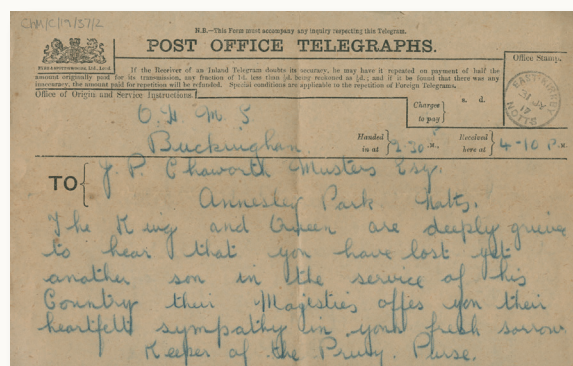 CHM/C/19/37/2
N.B.—This Form must accompany any inquiry respecting this Telegram.
POST OFFICE TELEGRAPHS.
If the Receiver of an Inland Telegram doubts its accuracy, he may have it repeated on payment of half the
amount originally paid for its transmission, any fraction of 1d. less than ½d. being reckoned as ½d.; and if it be found that there was any
inaccuracy, the amount paid for repetition will be refunded. Special conditions are applicable to the repetition of Foreign Telegrams.
Office Stamp.
Office of Origin and Service Instructions.
O.H.M.S
Charges
to pay
s. d.
KIRKBY
AP
Buckingham
Handed
in at
2-30
M.,
Received
here at
4-10 P.M.
TO
J. P. Chaworth Musters Esq.
Annesley Park Notts.
The King and Queen are deeply grieve
to hear that you have lost yet
another son in the service of his
Country their Majesties offes you their
heartfelt sympathy in your fresh sorrow
Keeper of the Privy. Purse.